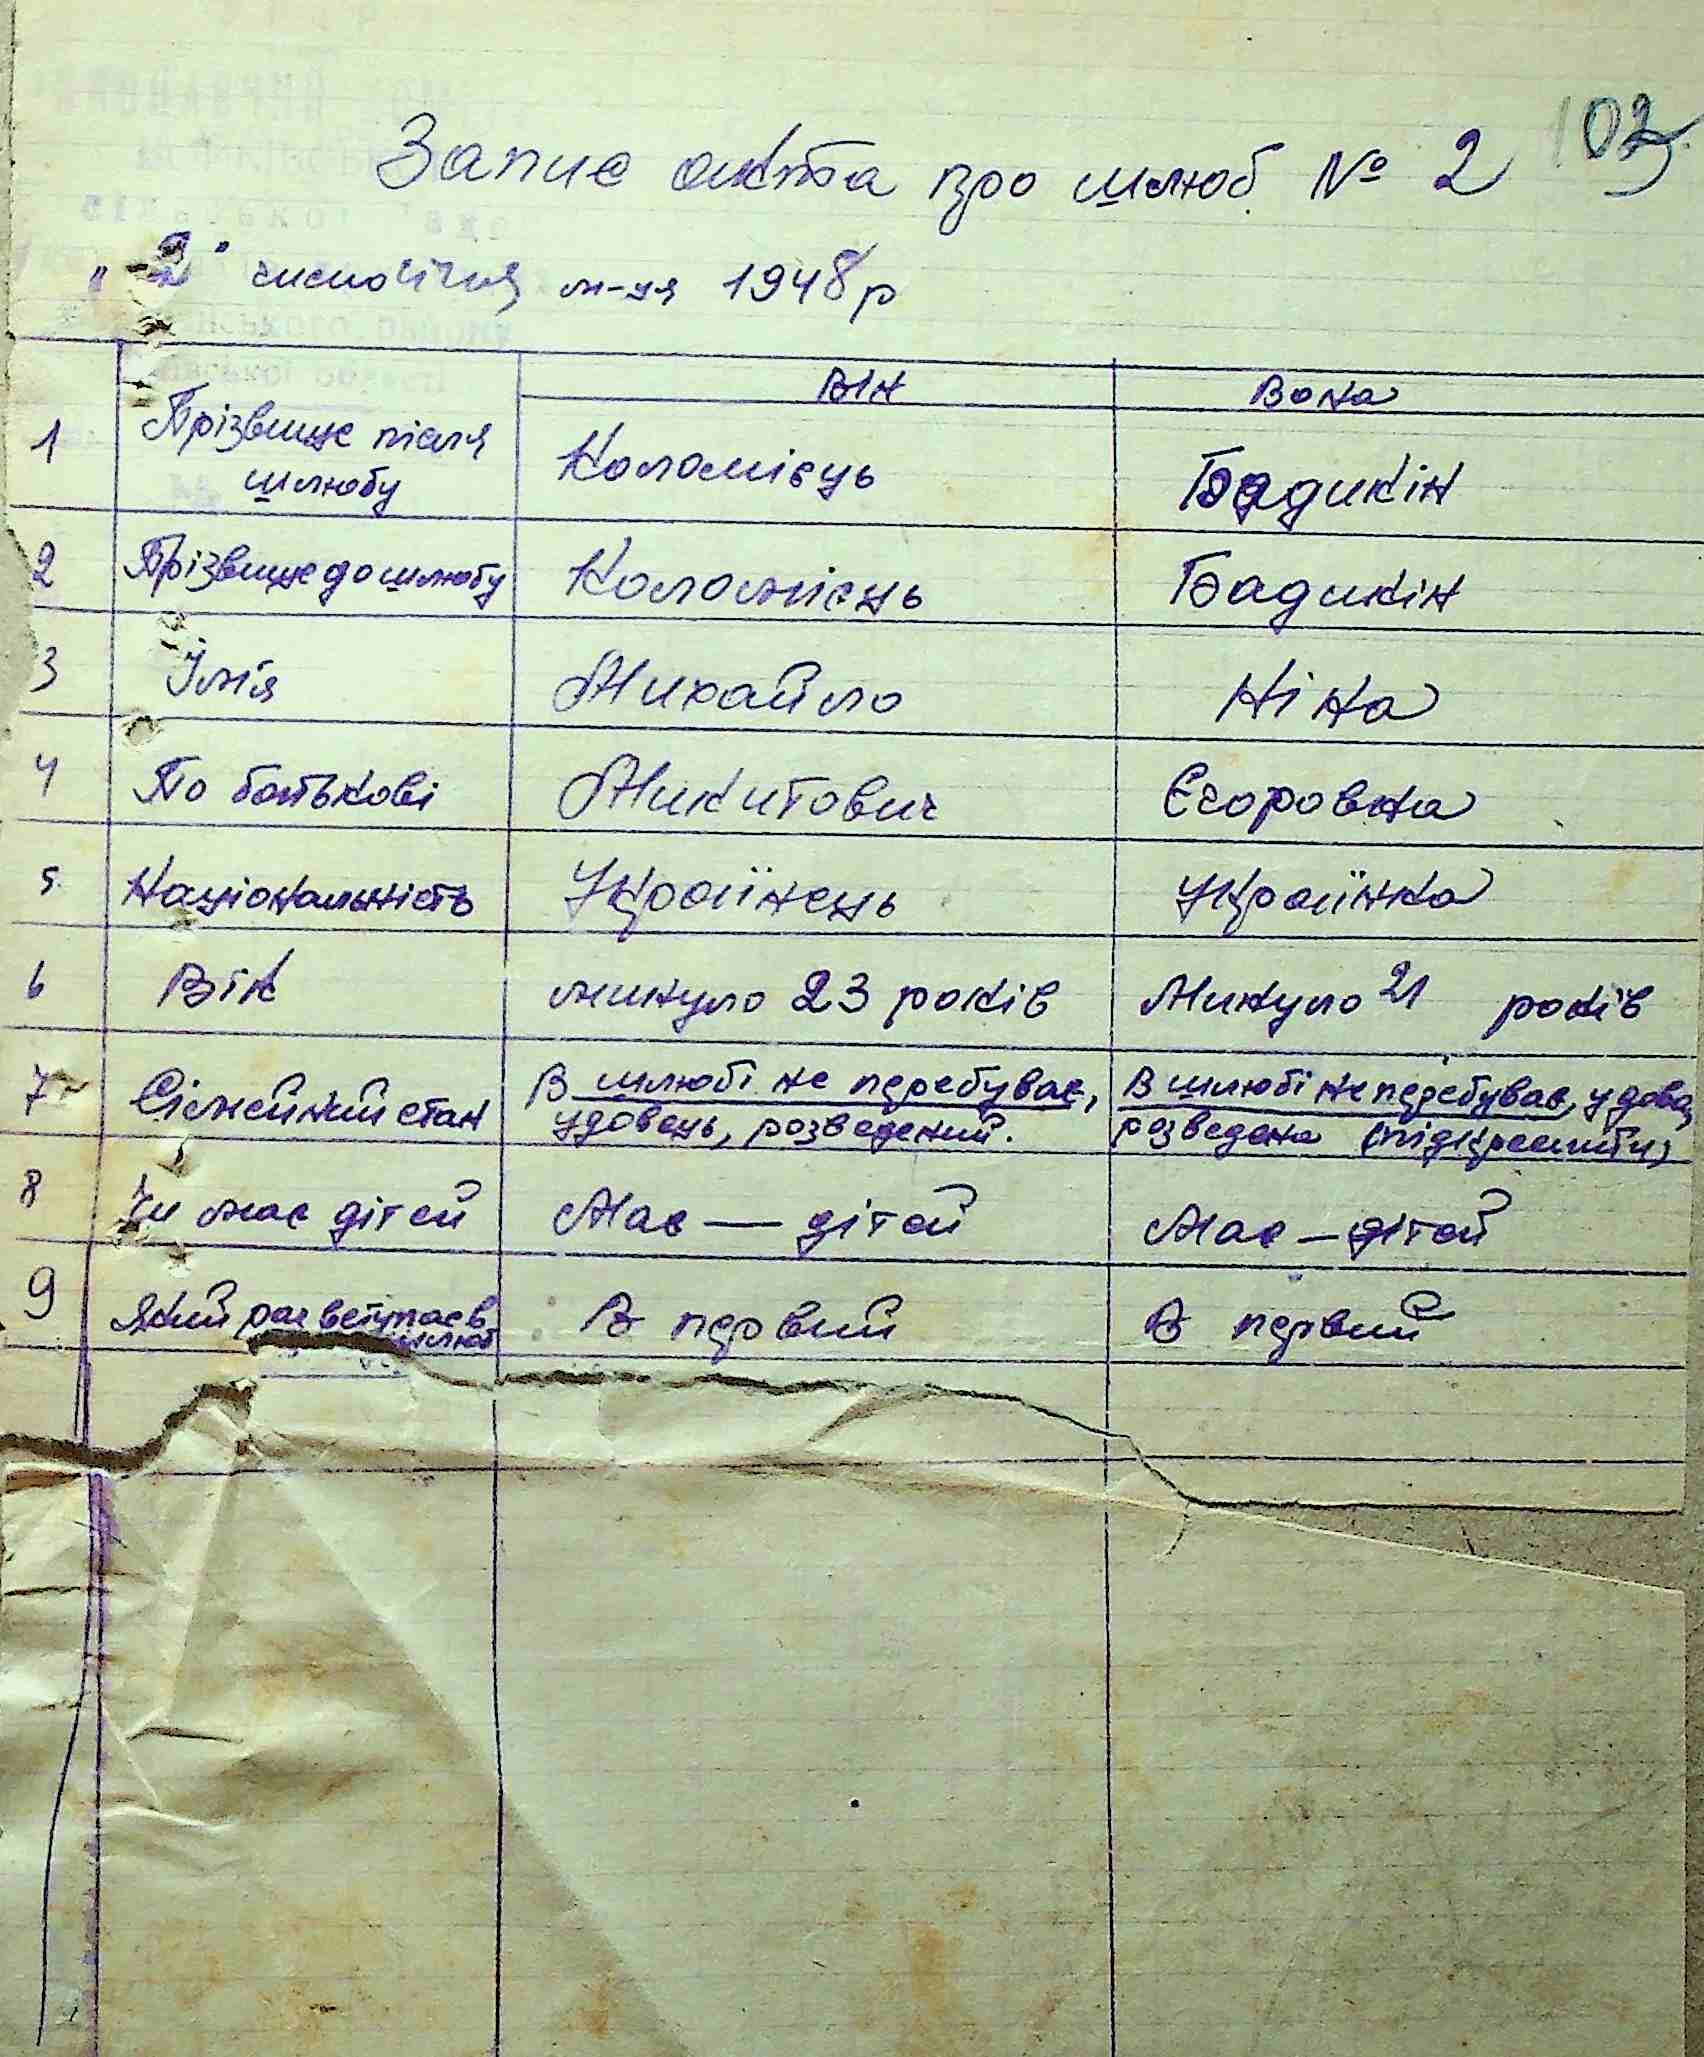 102
Запис акта про шлюб № 2
„2" числа січня м-ця 1948 р
Він Вона
1 Прізвище після шлюбу Коломієць Бадикін
2 Прізвище до шлюбу Коломієць Бадикін
3 Імія Михайло Ніна
4 По батькові Микитович Єгоровна
5 Національність Українець Українка
6 Вік минуло 23 років Минуло 21 років
7 Сімейний стан В шлюбі не перебуває, удовець, розведений. В шлюбі не перебуває, удова, розведена (підкреслити)
8 Чи має дітей Має — дітей Має — дітей
9 Який раз вступає в шлюб В первий В первий